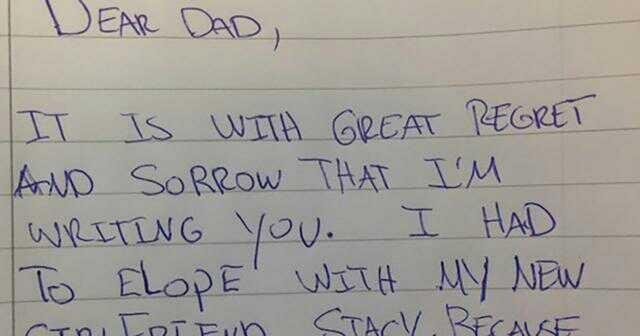 DEAR DAD,
IT IS WITH GREAT REGRET
AND SORROW THAT I'M
WRITING YOU. I HAD
TO ELOPE WITH MY NEW
GIRLFRIEND STACY, BECAUSE